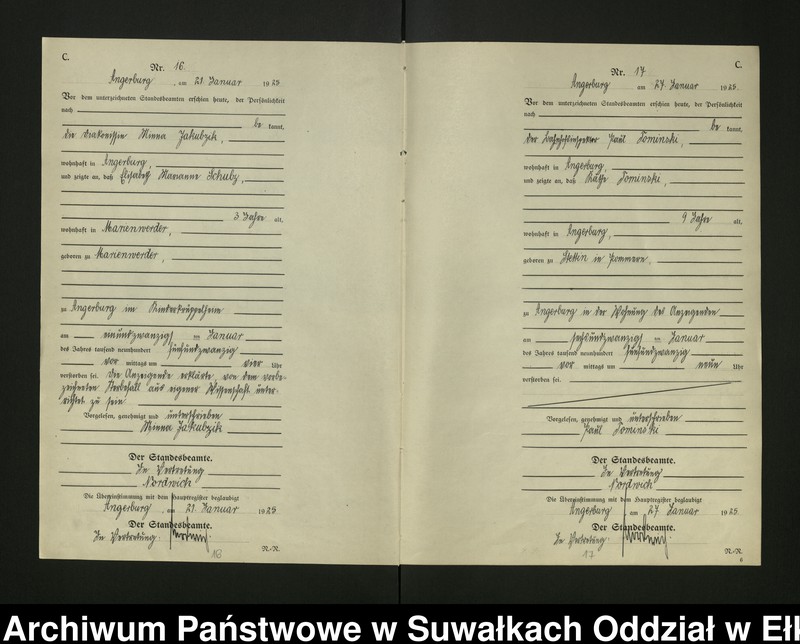 C.
Nr. 16.
Angerburg, am 21. Januar 1925
Vor dem unterzeichneten Standesbeamten erschien heute, der Persönlichkeit
nach
be kannt,
die Diakonissin Minna Jakubzik,
wohnhaft in Angerburg,
und zeigte an, daß Elisabeth Marianne Schulz,
3 Jahre alt,
wohnhaft in Marienwerder,
geboren zu Marienwerder,
zu Angerburg im Kinderkrüppelheim
am einundzwanzigsten Januar
des Jahres tausend neunhundert fünfundzwanzig
vor mittags um vier Uhr
verstorben sei. Die Anzeigende erklärte, von dem vorbe-
zeichneten Sterbefall aus eigener Wissenschaft unter-
richtet zu sein.
Vorgelesen, genehmigt und unterschrieben
Minna Jakubzik
Der Standesbeamte.
In Vertretung
Nordwich
Die Übereinstimmung mit dem Hauptregister beglaubigt
Angerburg, am 21. Januar 1925
Der Standesbeamte.
In Vertretung.
N.-R.
16
C.
Nr. 17
Angerburg am 27. Januar 1925.
Vor dem unterzeichneten Standesbeamten erschien heute, der Persönlichkeit
nach
be kannt,
der Paul Tominski,
wohnhaft in Angerburg,
und zeigte an, daß Käthe Tominski,
9 Jahre alt,
wohnhaft in Angerburg,
geboren zu Stettin in Pommern,
zu Angerburg in der Wohnung des Anzeigenden
am sechsundzwanzigsten Januar
des Jahres tausend neunhundert fünfundzwanzig
vor mittags um neun Uhr
verstorben sei.
Vorgelesen, genehmigt und unterschrieben
Paul Tominski
Der Standesbeamte.
In Vertretung
Nordwich
Die Übereinstimmung mit dem Hauptregister beglaubigt
Angerburg am 27. Januar 1925.
Der Standesbeamte.
In Vertretung.
N.-R.
17
6
Archiwum Państwowe w Suwałkach Oddział w Eł